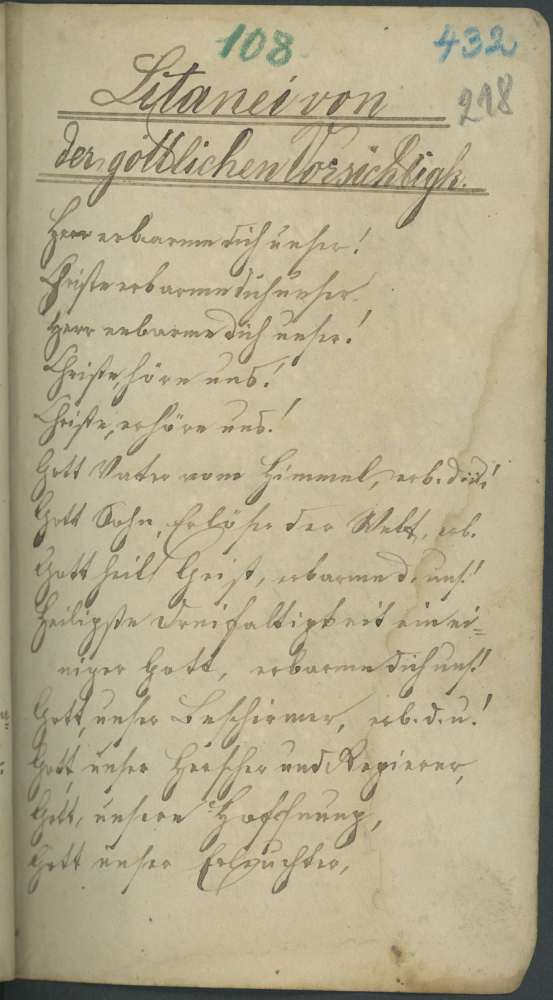 108
432
218
Litanei von
der göttlichen Vorsichtigk.
Herr erbarme dich unser!
Christe erbarme dich unser.
Herr erbarme dich unser!
Christe, höre uns!
Christe, erhöre uns!
Gott Vater vom Himmel, erb. d. u.!
Gott Sohn, Erlöser der Welt, erb.
Gott heil. Geist, erbarme d. uns!
Heiligste Dreifaltigkeit ein ei=
niger Gott, erbarme dich uns!
Gott, unser Beschirmer, erb. d. u.!
Gott, unser Herscher und Regierer,
Gott, unsere Hoffnung,
Gott unser Erleuchter,